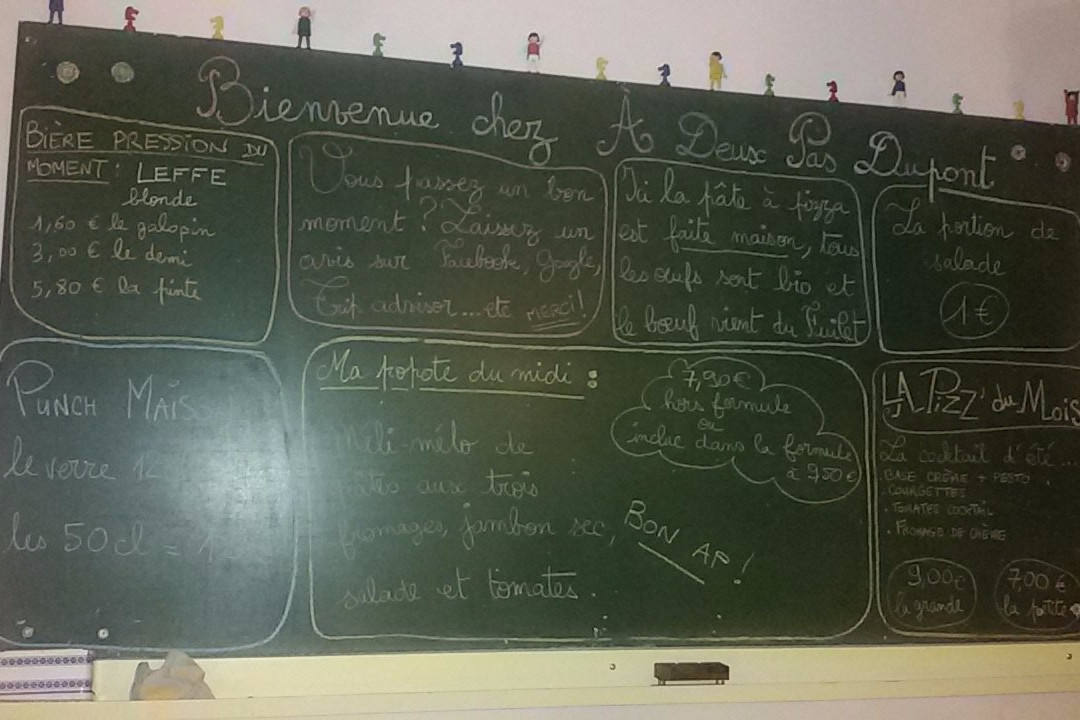 Bienvenue chez À Deux Pas Dupont
BIÈRE PRESSION DU
MOMENT : LEFFE
blonde
1,60 € le galopin
3,00 € le demi
5,80 € la pinte
Vous passez un bon
moment ? Laissez un
avis sur Facebook, Google,
Trip advisor... etc MERCI !
Ici la pâte à pizza
est faite maison, tous
les œufs sont bio et
le bœuf vient du
La portion de
salade
1€
PUNCH
le verre
les 50cl =
Ma popote du midi :
7,90€
hors formule
ou
inclue dans la formule
à 9,50€
Méli-mélo de
pâtes aux trois
fromages, jambon sec,
salade et tomates.
BON AP !
LA PIZZ' du MOIS
La cocktail d'été ...
. BASE CRÈME + PESTO
. COURGETTES
. TOMATES COCKTAIL
. FROMAGE DE CHÈVRE
9,00€
la grande
7,00 €
la petite